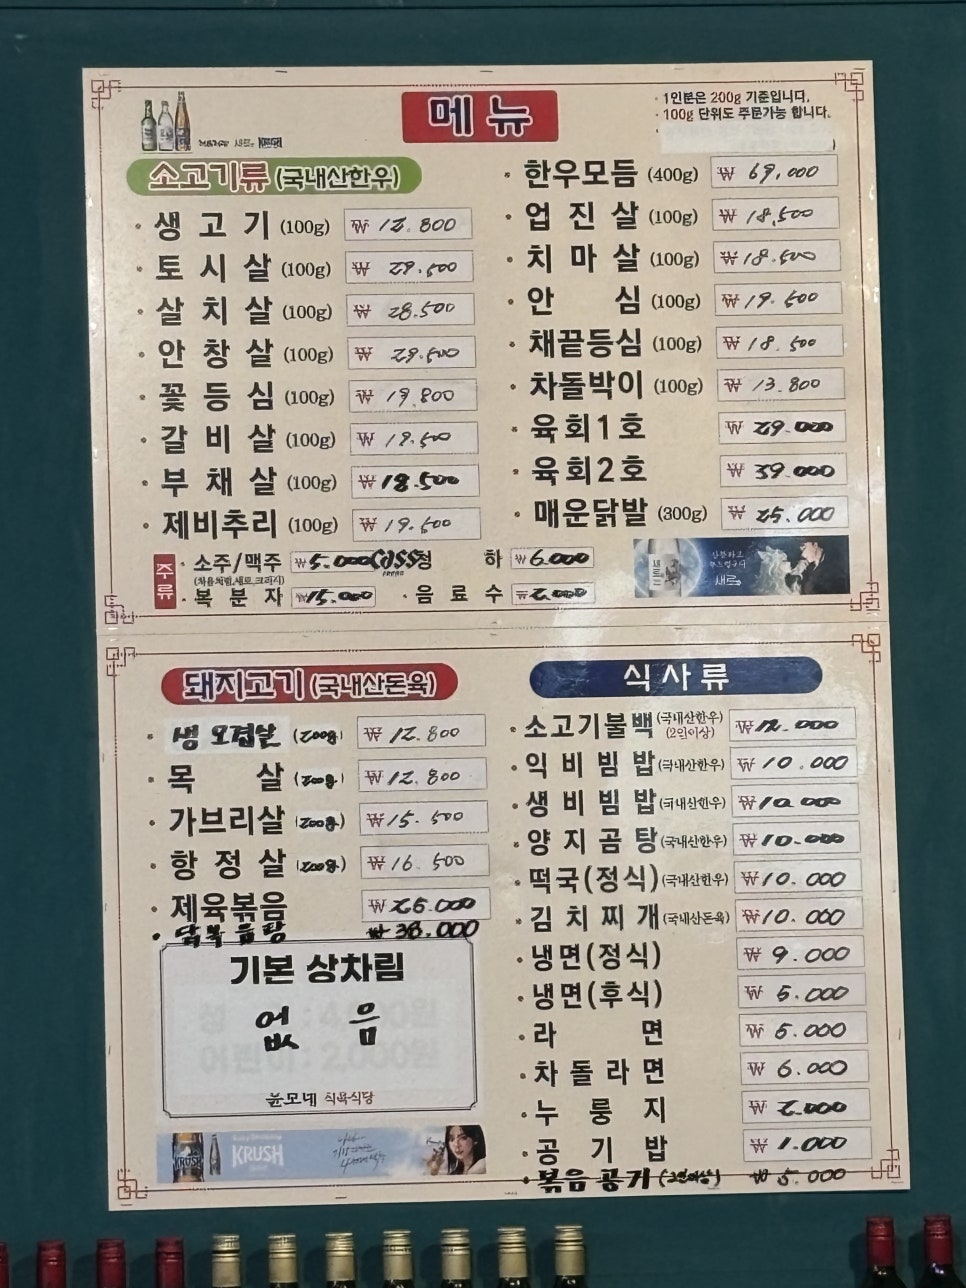 메뉴
· 1인분은 200g 기준입니다.
· 100g 단위도 주문가능 합니다.
소고기류 (국내산한우)
· 생고기 (100g) ₩ 12.800
· 토시살 (100g) ₩ 29.500
· 살치살 (100g) ₩ 28.500
· 안창살 (100g) ₩ 29.500
· 꽃등심 (100g) ₩ 19.800
· 갈비살 (100g) ₩ 19.500
· 부채살 (100g) ₩ 18.500
· 제비추리 (100g) ₩ 19.500
· 한우모듬 (400g) ₩ 69,000
· 업진살 (100g) ₩ 18,500
· 치마살 (100g) ₩ 18.500
· 안심 (100g) ₩ 19.500
· 채끝등심 (100g) ₩ 18.500
· 차돌박이 (100g) ₩ 13.800
· 육회1호 ₩ 29.000
· 육회2호 ₩ 39.000
· 매운닭발 (300g) ₩ 25.000
주류
· 소주/맥주 ₩ 5.000 Cass
(처음처럼,새로,크러시)
청하 ₩ 6.000
· 복분자 ₩ 15.000
· 음료수 ₩ 2.000
새로
돼지고기 (국내산돈육)
· 생오겹살 (200g) ₩ 12.800
· 목살 (200g) ₩ 12.800
· 가브리살 (200g) ₩ 15.500
· 항정살 (200g) ₩ 16.500
· 제육볶음 ₩ 25.000
· 닭볶음탕 ₩ 38.000
기본 상차림
없음
윤모네 식육식당
KRUSH
KRUSH
식사류
· 소고기불백 (국내산한우) ₩ 12.000
(2인이상)
· 익비빔밥 (국내산한우) ₩ 10.000
· 생비빔밥 (국내산한우) ₩ 10.000
· 양지곰탕 (국내산한우) ₩ 10.000
· 떡국(정식) (국내산한우) ₩ 10.000
· 김치찌개 (국내산돈육) ₩ 10.000
· 냉면(정식) ₩ 9.000
· 냉면(후식) ₩ 5.000
· 라면 ₩ 5.000
· 차돌라면 ₩ 6.000
· 누룽지 ₩ 2.000
· 공기밥 ₩ 1.000
· 볶음공기 (2인이상) ₩ 5.000